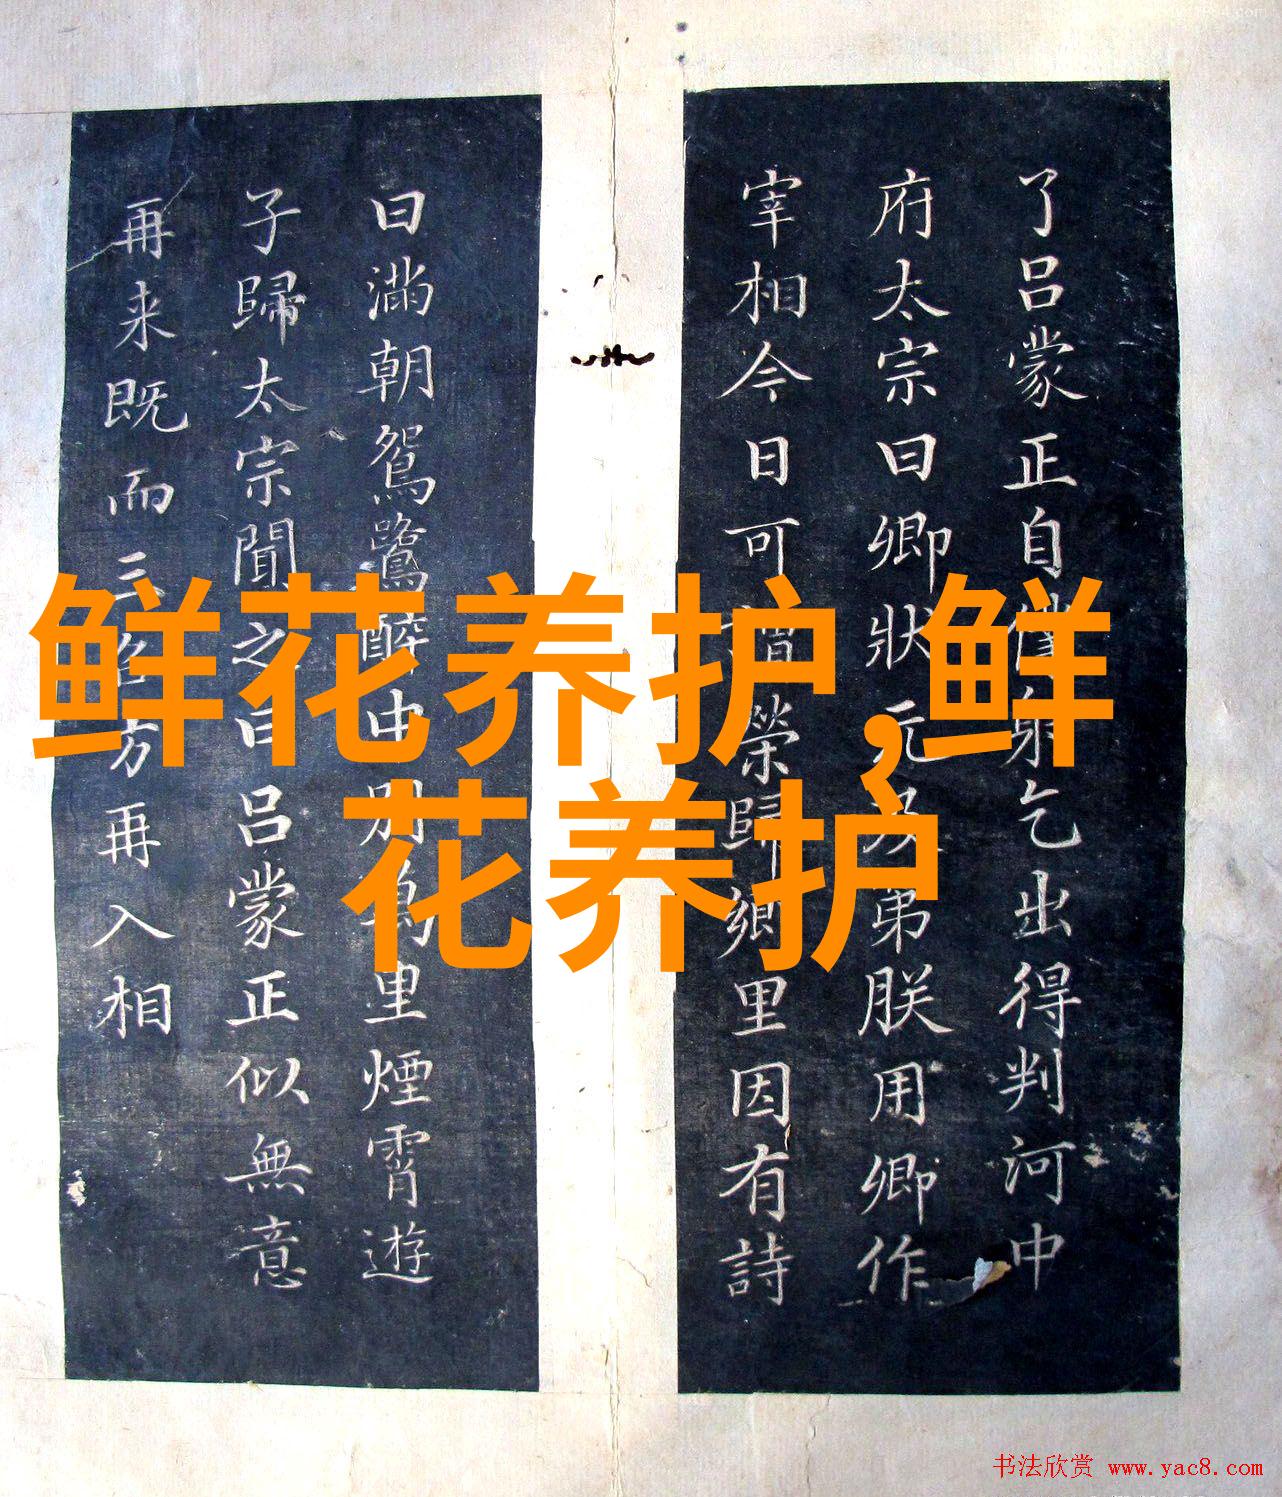 了吕蒙正自僕射乞出得判河中
府太宗曰卿狀元及弟朕用卿作
宰相今日可謂榮歸鄉里因有詩
曰滿朝鴛鷺醉中別萬里煙霄遊
子歸太宗聞之曰吕蒙正似無意
再来既而三召方再入相
鲜花养护,鲜
花养护
书法欣赏 www.yac8.com